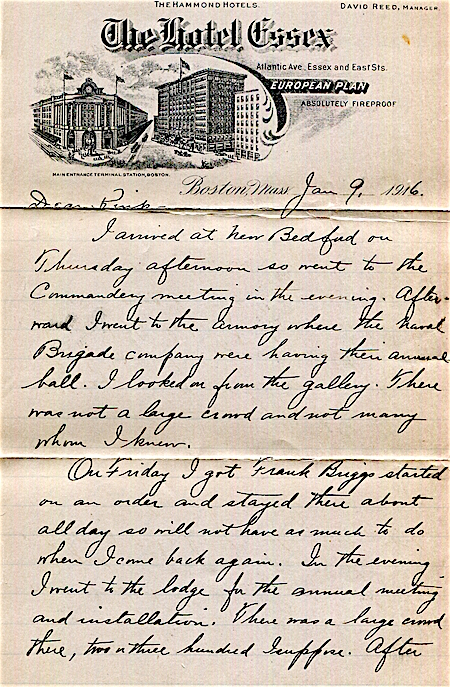 THE HAMMOND HOTELS.
DAVID REED, MANAGER.
The Hotel Essex
Atlantic Ave., Essex and East Sts.
EUROPEAN PLAN
ABSOLUTELY FIREPROOF
MAIN ENTRANCE TERMINAL STATION, BOSTON.
Boston, Mass. Jan 9, 1916.
Dear
I arrived at New Bedford on
Thursday afternoon so went to the
Commandery meeting in the evening. After-
ward I went to the armory where the Naval
Brigade company were having their annual
ball. I looked on from the gallery. There
was not a large crowd and not many
whom I knew.
On Friday I got Frank Briggs started
on an order and stayed there about
all day so will not have as much to do
when I come back again. In the evening
I went to the lodge for the annual meeting
and installation. There was a large crowd
there, two or three hundred I suppose. After